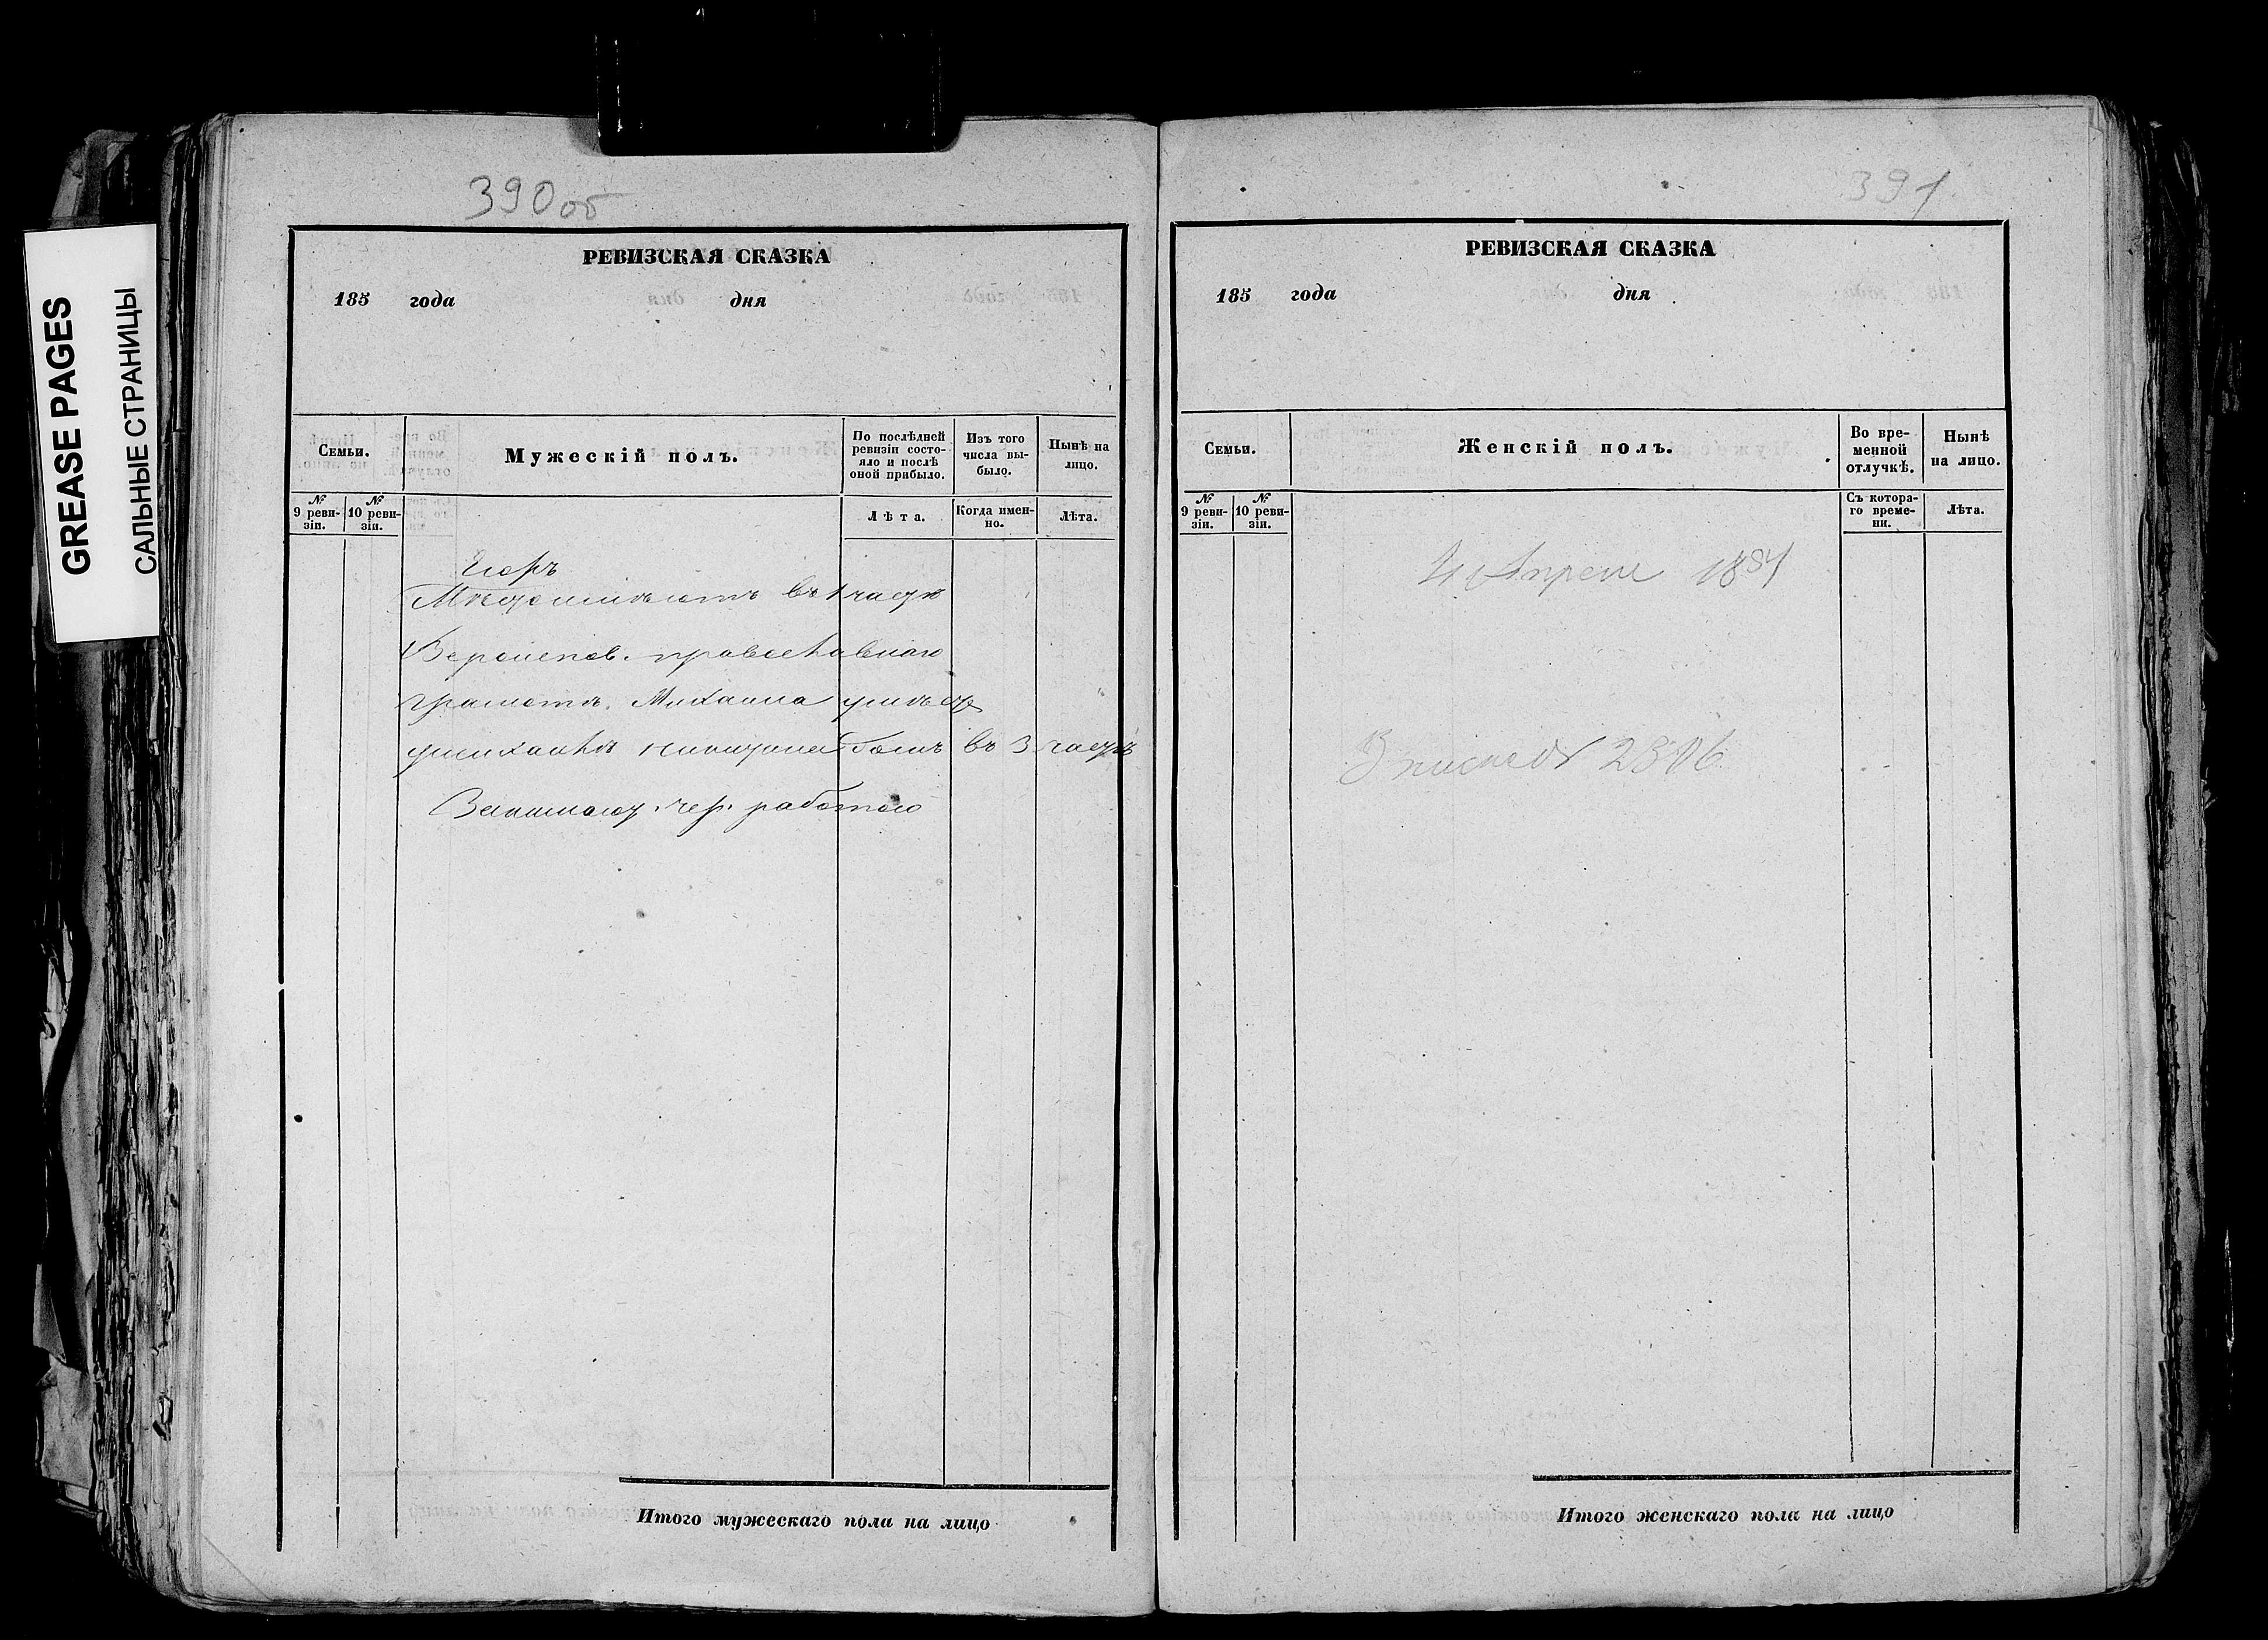 GREASE PAGES
САЛЬНЫЕ СТРАНИЦЫ
390 об
РЕВИЗСКАЯ СКАЗКА
185 года дня
Семьи.
Мужескій полъ.
По послѣдней ревизіи состояло и послѣ оной прибыло.
Изъ того числа выбыло.
Нынѣ на лицо.
№ 9 ревизіи.
№ 10 ревизіи.
Лѣта.
Когда именно.
Лѣта.
въ 1 части
православнаго
грамотѣ. Михаила
въ 3 части
работою
Итого мужескаго пола на лицо
391
РЕВИЗСКАЯ СКАЗКА
185 года дня
Семьи.
Женскій полъ.
Во временной отлучкѣ.
Нынѣ на лицо.
№ 9 ревизіи.
№ 10 ревизіи.
Съ котораго времени.
Лѣта.
4 Апреля 1884
2306
Итого женскаго пола на лицо